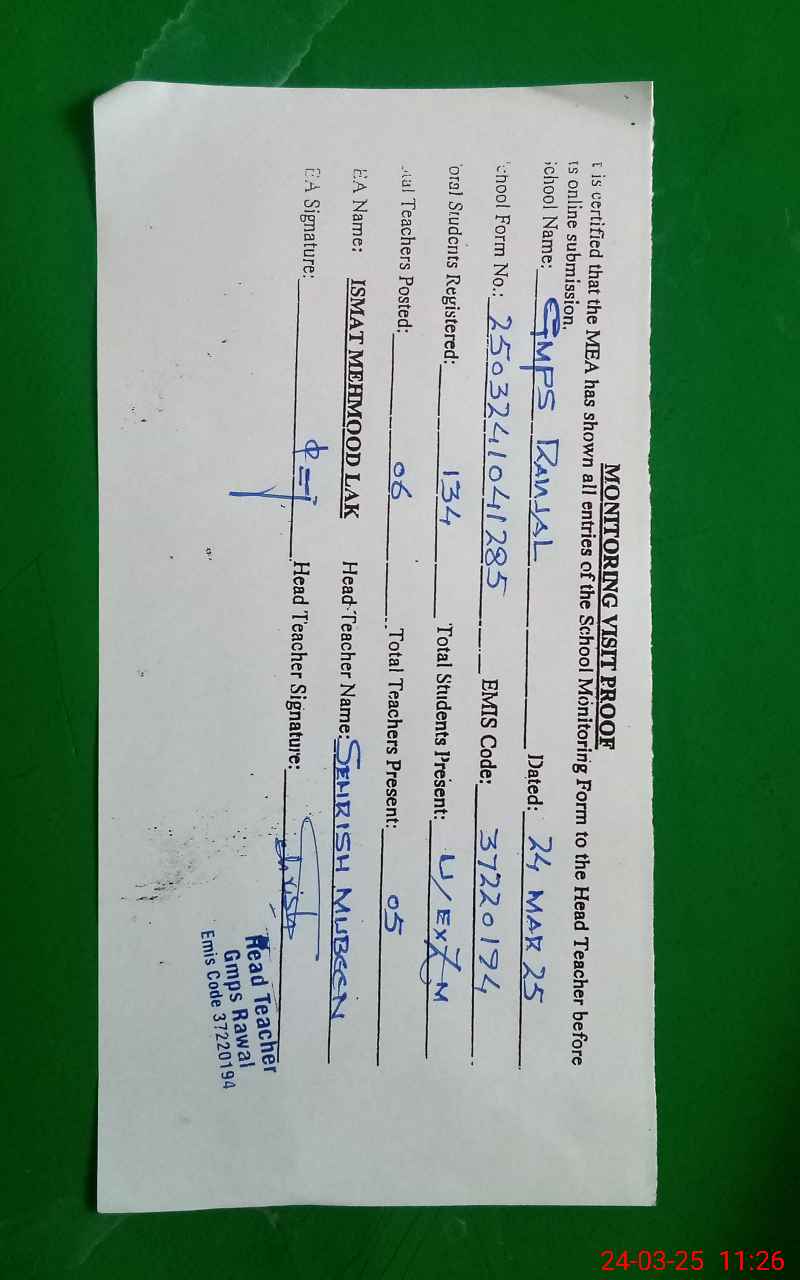 MONITORING VISIT PROOF
t is certified that the MEA has shown all entries of the School Monitoring Form to the Head Teacher before
ts online submission.
chool Name: GMPS RAWAL Dated: 24 MAR 25
chool Form No.: 2503241041285 EMIS Code: 37220194
otal Students Registered: 134 Total Students Present: U/EXAM
tal Teachers Posted: 06 Total Teachers Present: 05
EA Name: ISMAT MEHMOOD LAK Head Teacher Name: SEHRISH MUBEEN
EA Signature: Head Teacher Signature: Sehrish
Head Teacher
Gmps Rawal
Emis Code 37220194
24-03-25 11:26